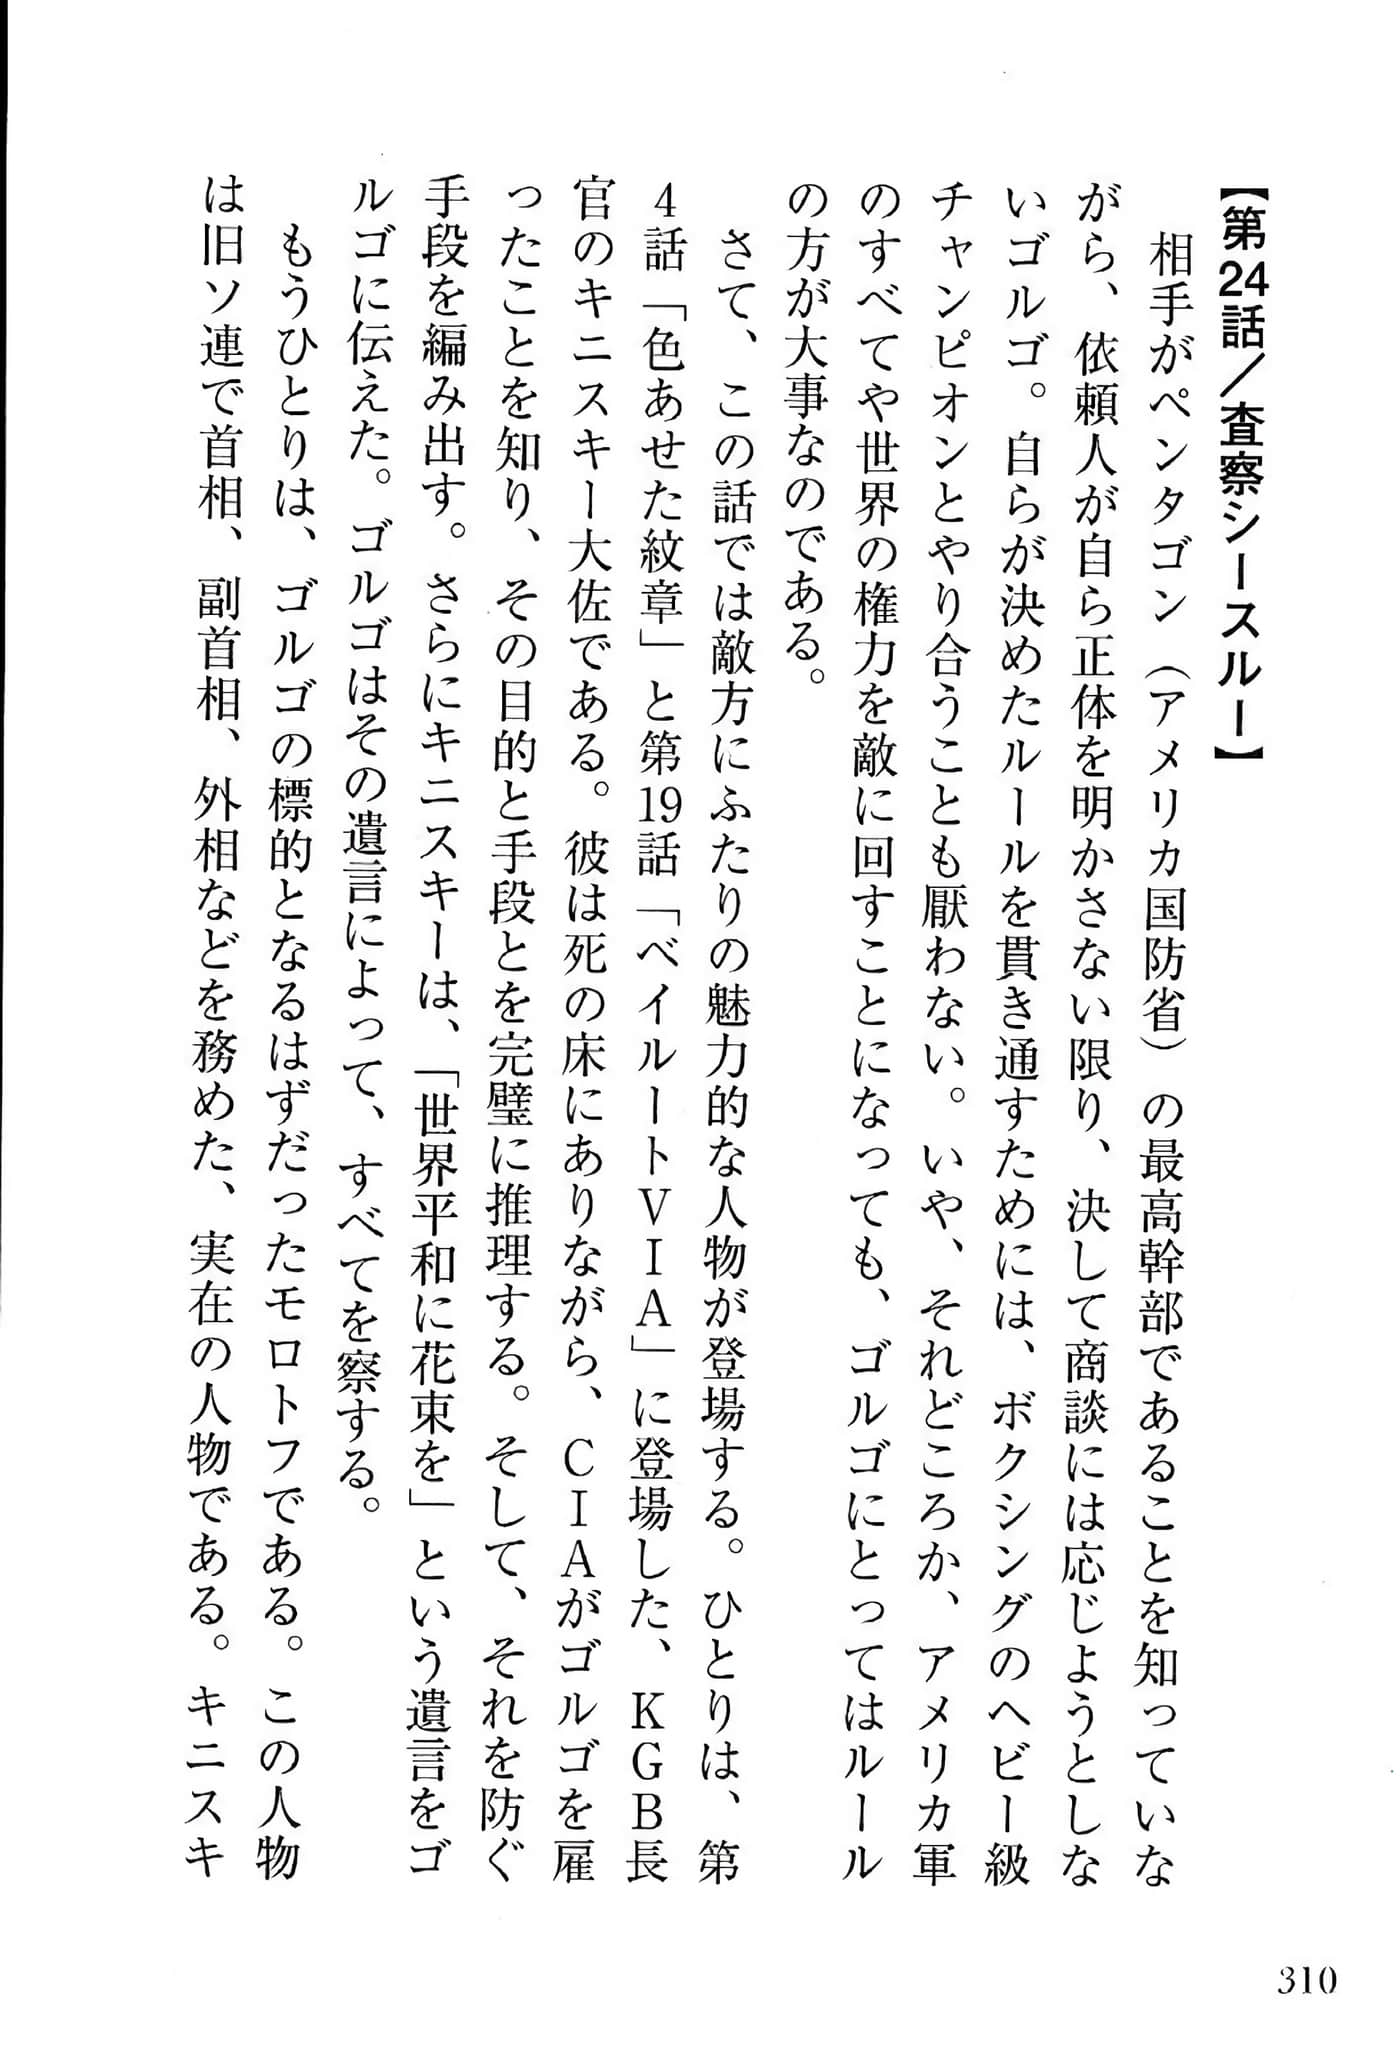 【第24話／査察シースルー】
相手がペンタゴン（アメリカ国防省）の最高幹部であることを知っていな
がら、依頼人が自ら正体を明かさない限り、決して商談には応じようとしな
いゴルゴ。自らが決めたルールを貫き通すためには、ボクシングのヘビー級
チャンピオンとやり合うことも厭わない。いや、それどころか、アメリカ軍
のすべてや世界の権力を敵に回すことになっても、ゴルゴにとってはルール
の方が大事なのである。
さて、この話では敵方にふたりの魅力的な人物が登場する。ひとりは、第
4話「色あせた紋章」と第19話「ベイルートVIA」に登場した、KGB長
官のキニスキー大佐である。彼は死の床にありながら、CIAがゴルゴを雇
ったことを知り、その目的と手段とを完璧に推理する。そして、それを防ぐ
手段を編み出す。さらにキニスキーは、「世界平和に花束を」という遺言をゴ
ルゴに伝えた。ゴルゴはその遺言によって、すべてを察する。
もうひとりは、ゴルゴの標的となるはずだったモロトフである。この人物
は旧ソ連で首相、副首相、外相などを務めた、実在の人物である。キニスキ
310